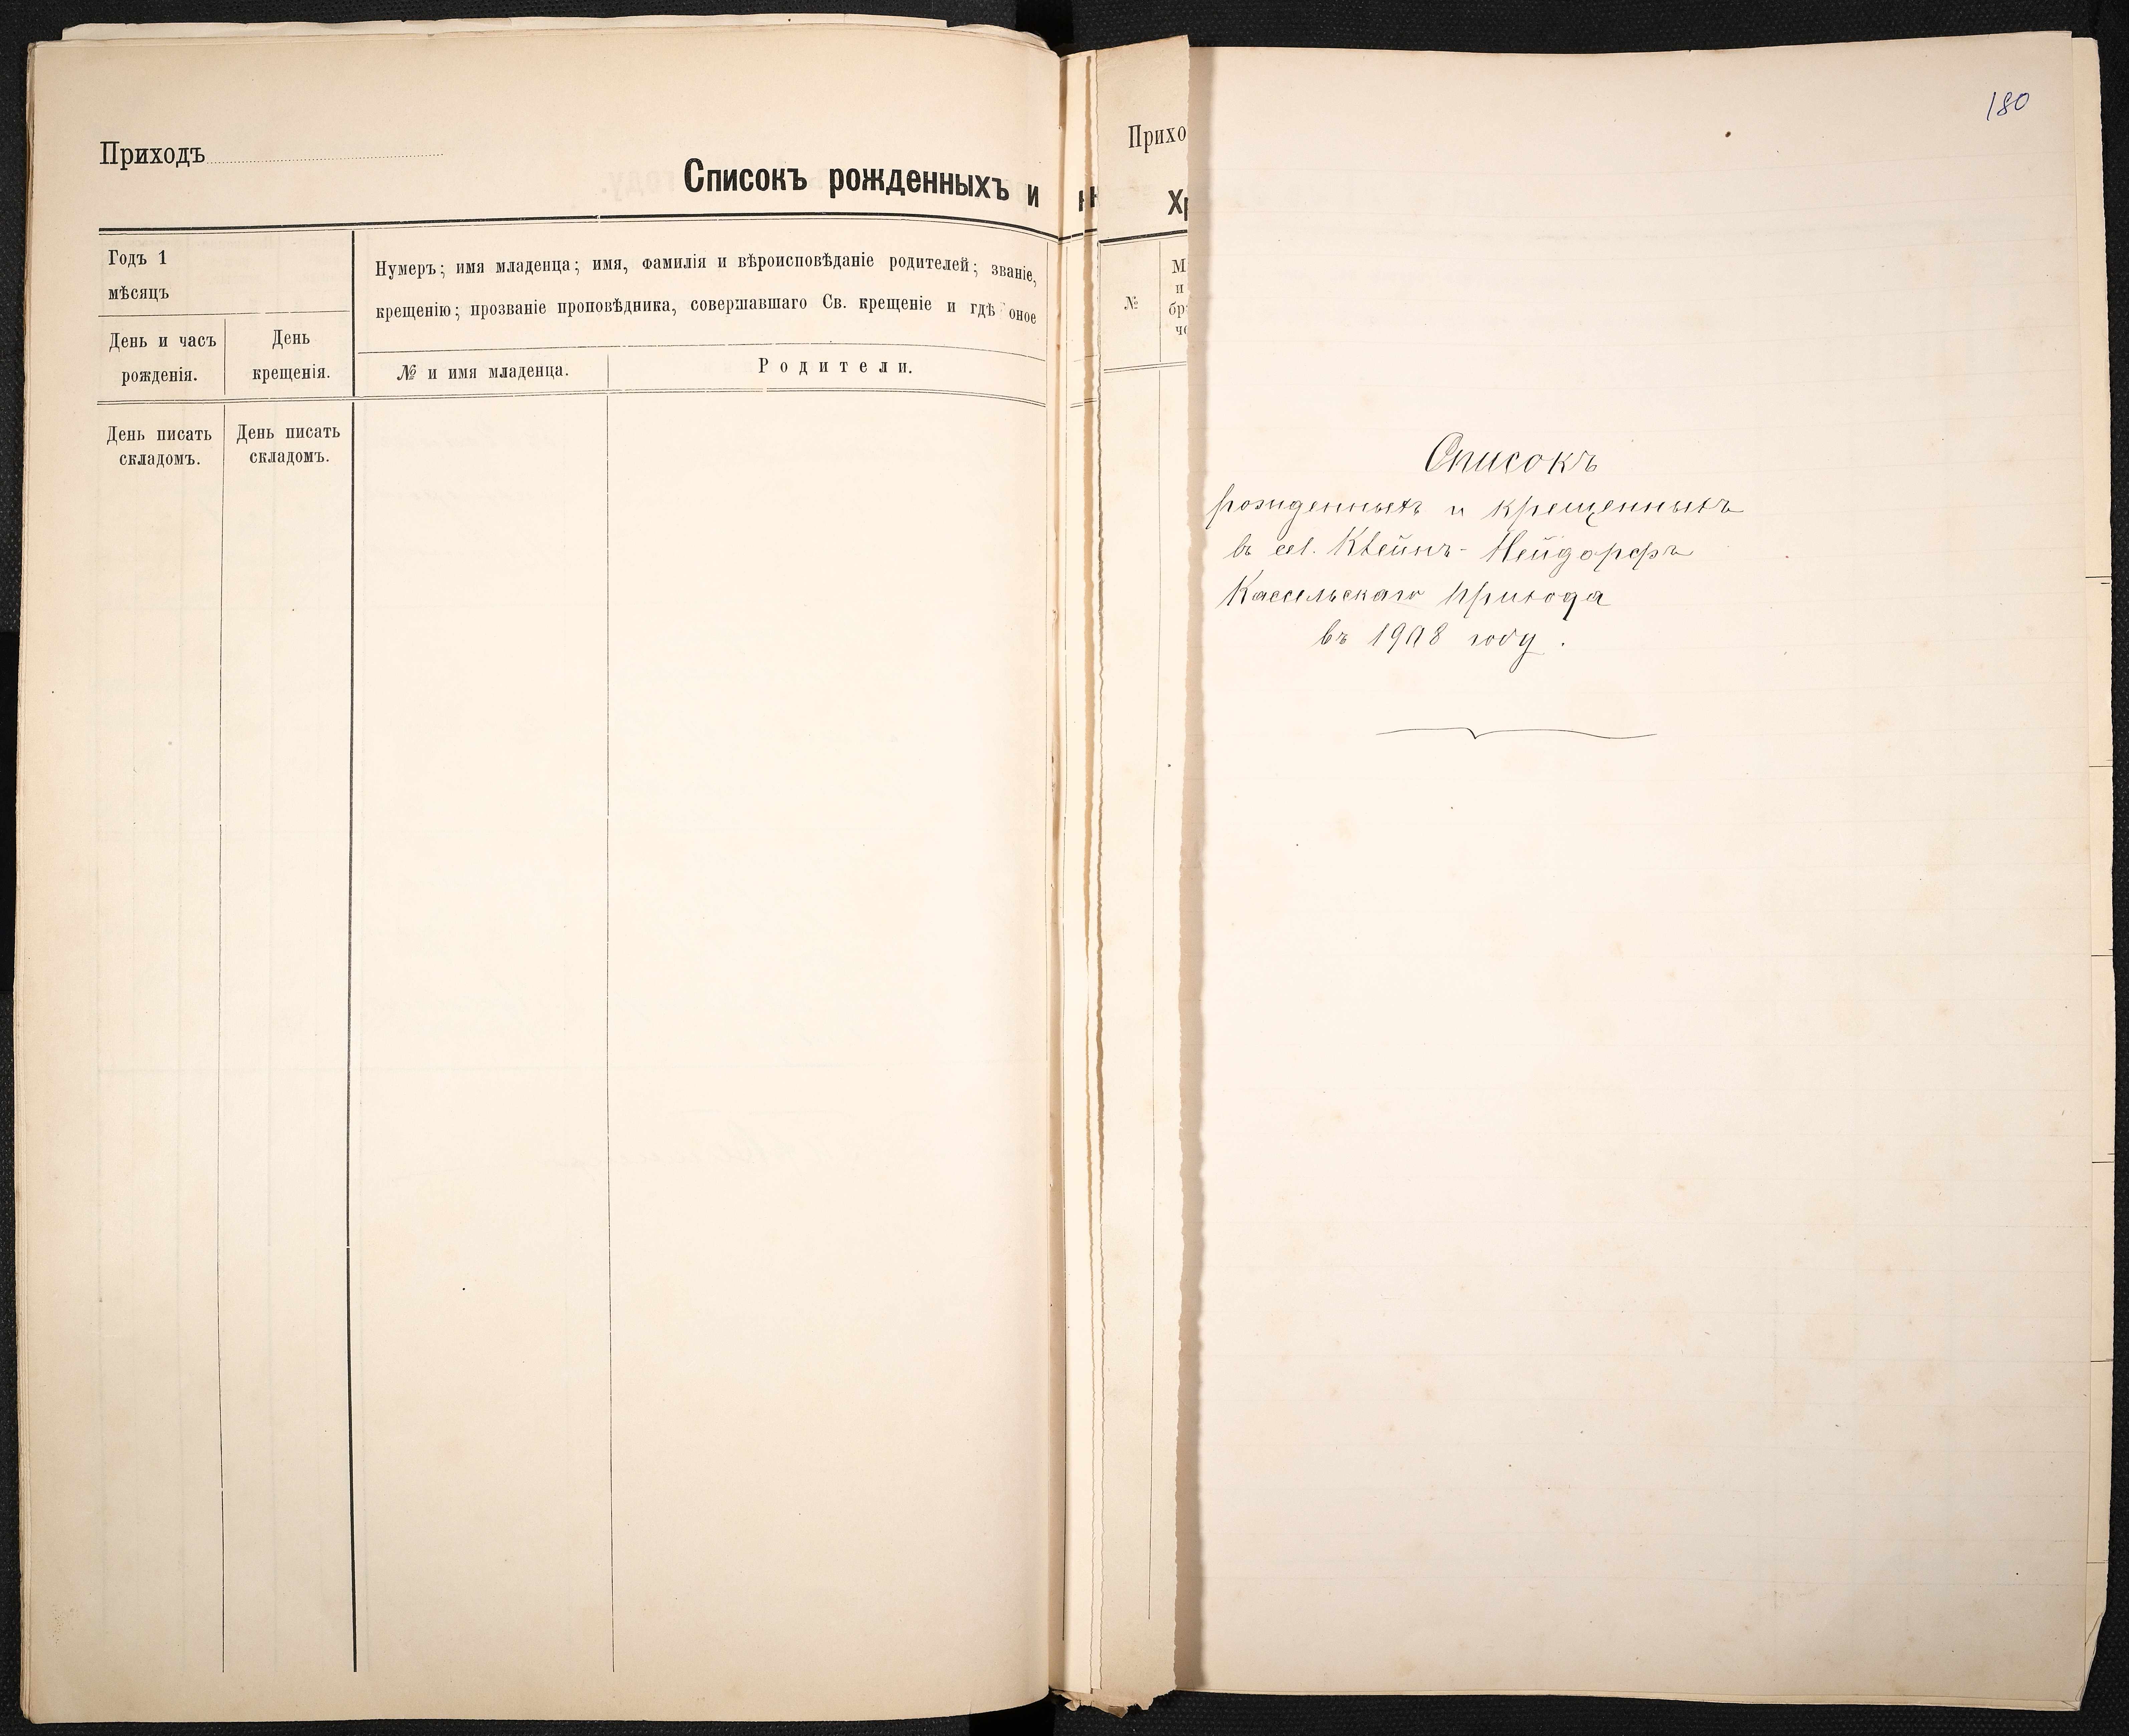 Приходъ
Списокъ рожденныхъ и
Годъ 1
мѣсяцъ
Нумеръ; имя младенца; имя, фамилія и вѣроисповѣданіе родителей; званіе,
крещенію; прозваніе проповѣдника, совершавшаго Св. крещеніе и гдѣ оное
День и часъ
рожденія.
День
крещенія.
№ и имя младенца.
Родители.
День писать
складомъ.
День писать
складомъ.
Прихо
Хр
№
180
Списокъ
рожденныхъ и крещенныхъ
въ сел. Клейнъ-Нейдорфъ
Кассельскаго прихода
въ 1908 году.